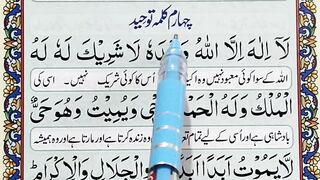 چہارم کلمہ توحید
لَآ اِلٰهَ اِلَّا اللهُ وَ دَهٗ لَا شَرِيْكَ لَهٗ لَهُ
اللہ کے سوا کوئی معبود نہیں وہ ا اُس کا کوئی شریک نہیں۔ اسی کی
الْمُلْكُ وَ لَهُ الْحَمْ حْيٖ وَيُمِيْتُ وَهُوَ حَيٌّ
بادشاہی ہے اور اُسی کے لیے تمام تع ہ زندہ کرتا ہے اور مارتا ہے اور وہ ہمیشہ
لَّا يَمُوْتُ اَبَدًا اَبَدً الْجَلَالِ وَالْاِكْرَامِ ط